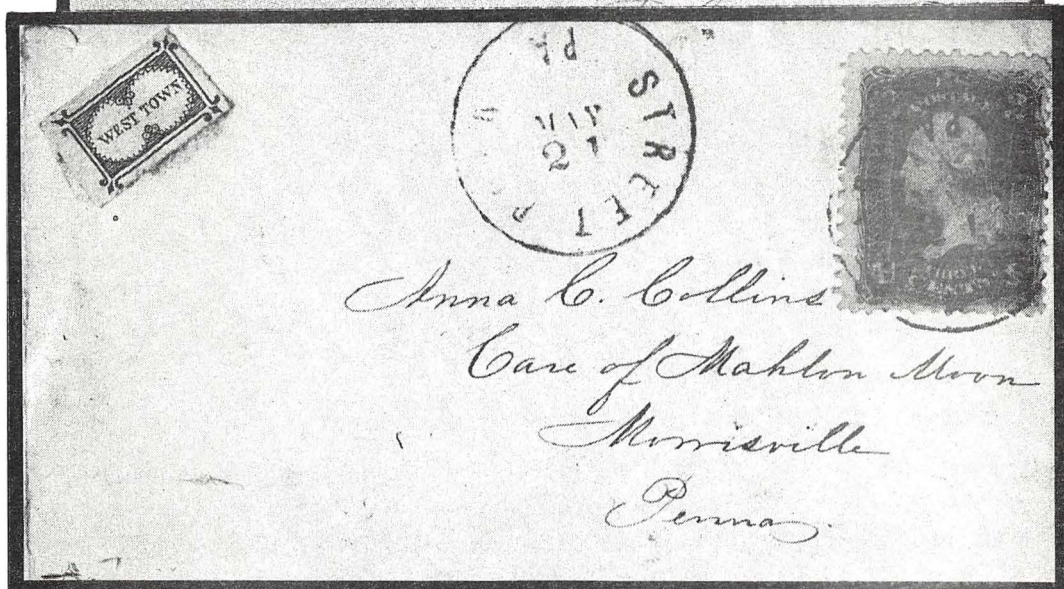 WEST TOWN
STREET P
PA
MAY
21
Anna C. Collins
Care of Mahlon Moon
Morrisville
Penna